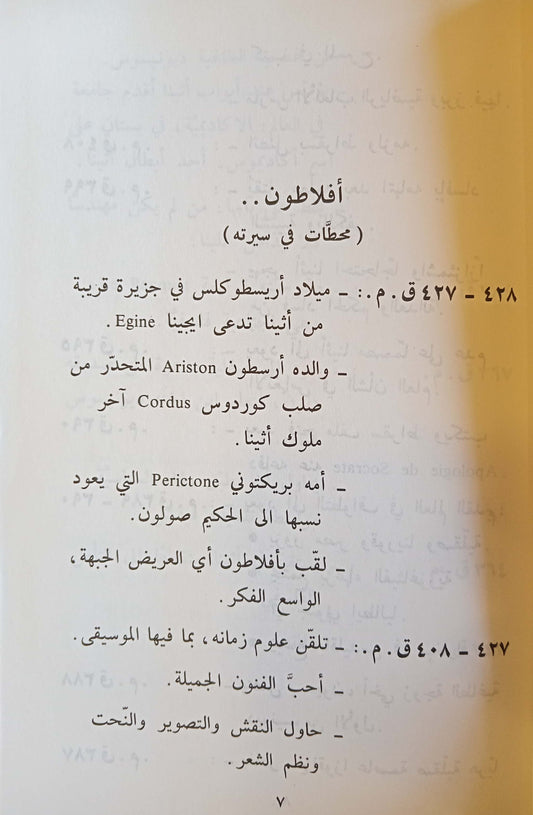 أفلاطون ..
( محطَّات في سيرته )
٤٢٨ ـ ٤٢٧ ق . م . : ـ ميلاد أريسطوكلس في جزيرة قريبة
من أثينا تدعى ايجينا Egine .
ـ والده أرسطون Ariston المتحدّر من
صلب كوردوس Cordus آخر
ملوك أثينا .
ـ أمه بريكتوني Perictone التي يعود
نسبها الى الحكيم صولون .
ـ لقّب بأفلاطون أي العريض الجبهة ،
الواسع الفكر .
٤٢٧ ـ ٤٠٨ ق . م . : ـ تلقّن علوم زمانه ، بما فيها الموسيقى .
ـ أحبَّ الفنون الجميلة .
ـ حاول النقش والتصوير والنّحت
ونظم الشعر .
٧